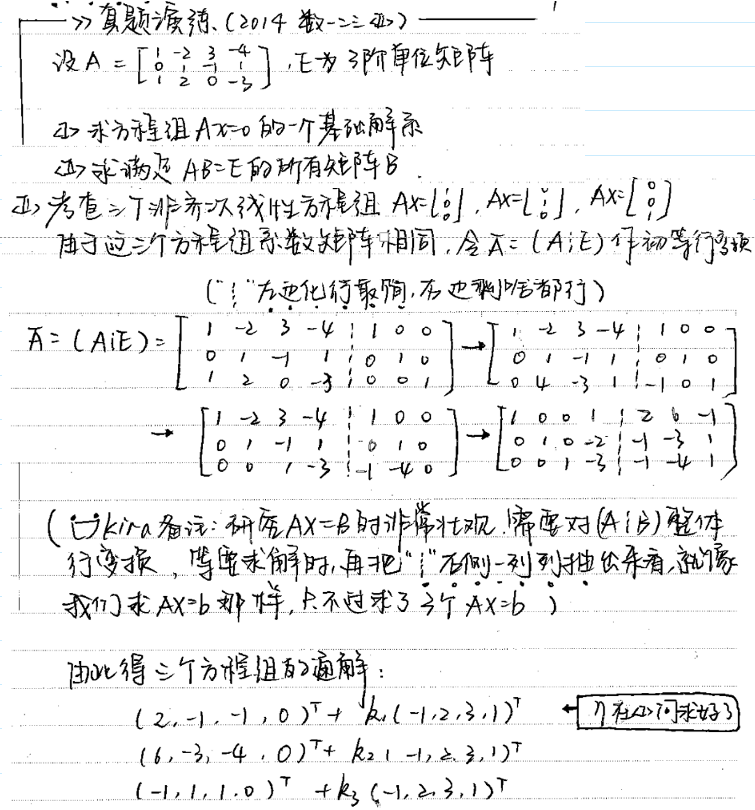 >> 真题演练.(2014 数一二三 <I>)
设 A = [1 -2 3 -4
0 1 -1 1
1 2 0 -3], E为3阶单位矩阵
<I> 求方程组 Ax=0 的一个基础解系
<II> 求满足 AB=E 的所有矩阵B.
<II> 考查三个非齐次线性方程组 Ax=[1 0 0], Ax=[0 1 0], Ax=[0 0 1]
由于这三个方程组系数矩阵相同, 令 Ā=(A¦E) 作初等行变换
("¦" 左边化行最简, 右边剩啥都行)
Ā=(A¦E)= [1 -2 3 -4 ¦ 1 0 0 → [1 -2 3 -4 ¦ 1 0 0
0 1 -1 1 ¦ 0 1 0 0 1 -1 1 ¦ 0 1 0
1 2 0 -3 ¦ 0 0 1] 0 4 -3 1 ¦ -1 0 1]
→ [1 -2 3 -4 ¦ 1 0 0 → [1 0 0 1 ¦ 2 6 -1
0 1 -1 1 ¦ 0 1 0 0 1 0 -2 ¦ -1 -3 1
0 0 1 -3 ¦ -1 -4 0] 0 0 1 -3 ¦ -1 -4 1]
(kira备注: 研究AX=B时非常壮观, 需要对(A¦B)整体
行变换, 等要求解时, 再把"¦"右侧一列列抽出来看, 就像
我们求AX=b那样, 只不过求了3个AX=b)
由此得三个方程组的通解:
(2,-1,-1,0)ᵀ + k₁(-1,2,3,1)ᵀ ← η在<I>问求好了
(6,-3,-4,0)ᵀ + k₂(-1,2,3,1)ᵀ
(-1,1,1,0)ᵀ + k₃(-1,2,3,1)ᵀ